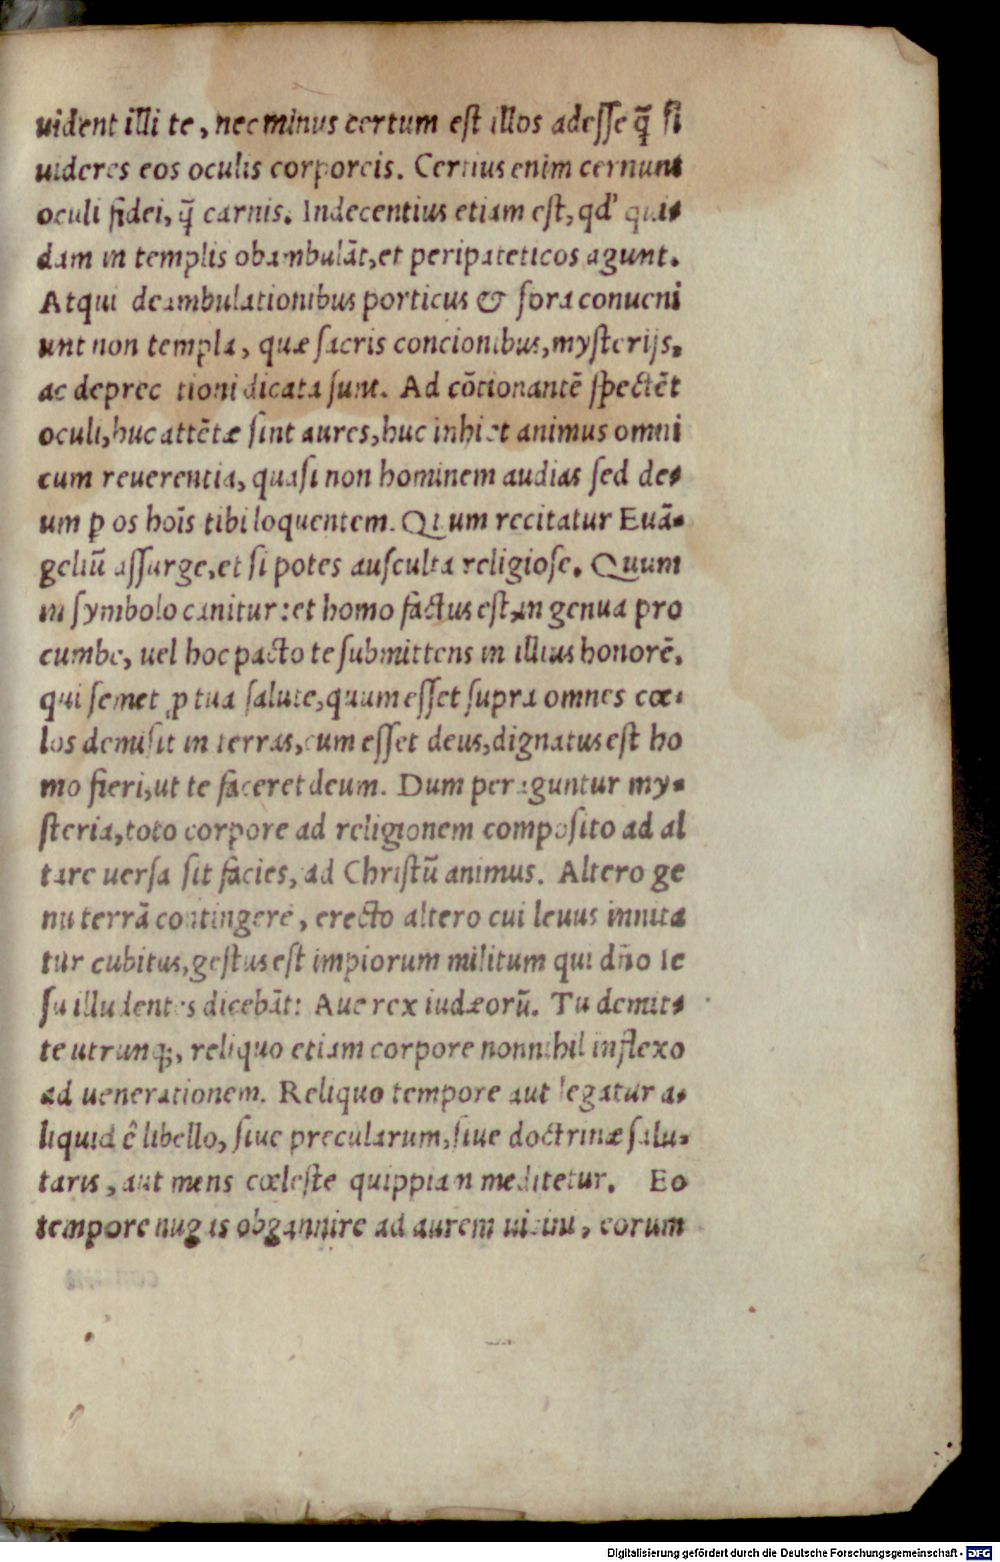 uident illi te, nec minus certum est illos adesse q̃ si
uideres eos oculis corporeis. Certius enim cernunt
oculi fidei, q̃ carnis. Indecentius etiam est, qd' quis
dam in templis obambulāt, et peripateticos agunt.
Atqui deambulationibus porticus & fora conueni
unt non templa, quæ sacris concionibus, mysterijs,
ac deprec tioni dicata sunt. Ad cōcionantē spectēt
oculi, huc attētæ sint aures, huc inhiet animus omni
cum reuerentia, quasi non hominem audias sed de-
um p̱ os hoīs tibi loquentem. Quum recitatur Euā-
geliū assurge, et si potes ausculta religiose. Quum
in symbolo canitur: et homo factus est, in genua pro
cumbe, uel hoc pacto te submittens in illius honorē,
qui semet ꝓ tua salute, quum esset supra omnes cœ-
los demisit in terras, cum esset deus, dignatus est ho
mo fieri, ut te faceret deum. Dum peraguntur my-
steria, toto corpore ad religionem composito ad al
tare uersa sit facies, ad Christū animus. Altero ge
nu terrā contingere, erecto altero cui leuus innita
tur cubitus, gestus est impiorum militum qui dño Ie
su illudentes dicebāt: Aue rex iudæorū. Tu demit-
te utrunq;, reliquo etiam corpore nonnihil inflexo
ad uenerationem. Reliquo tempore aut legatur a-
liquid ê libello, siue precularum, siue doctrinæ salu-
taris, aut mens cœleste quippiam meditetur. Eo
tempore nugas obgannire ad aurem uicini, eorum
Digitalisierung gefördert durch die Deutsche Forschungsgemeinschaft - DFG